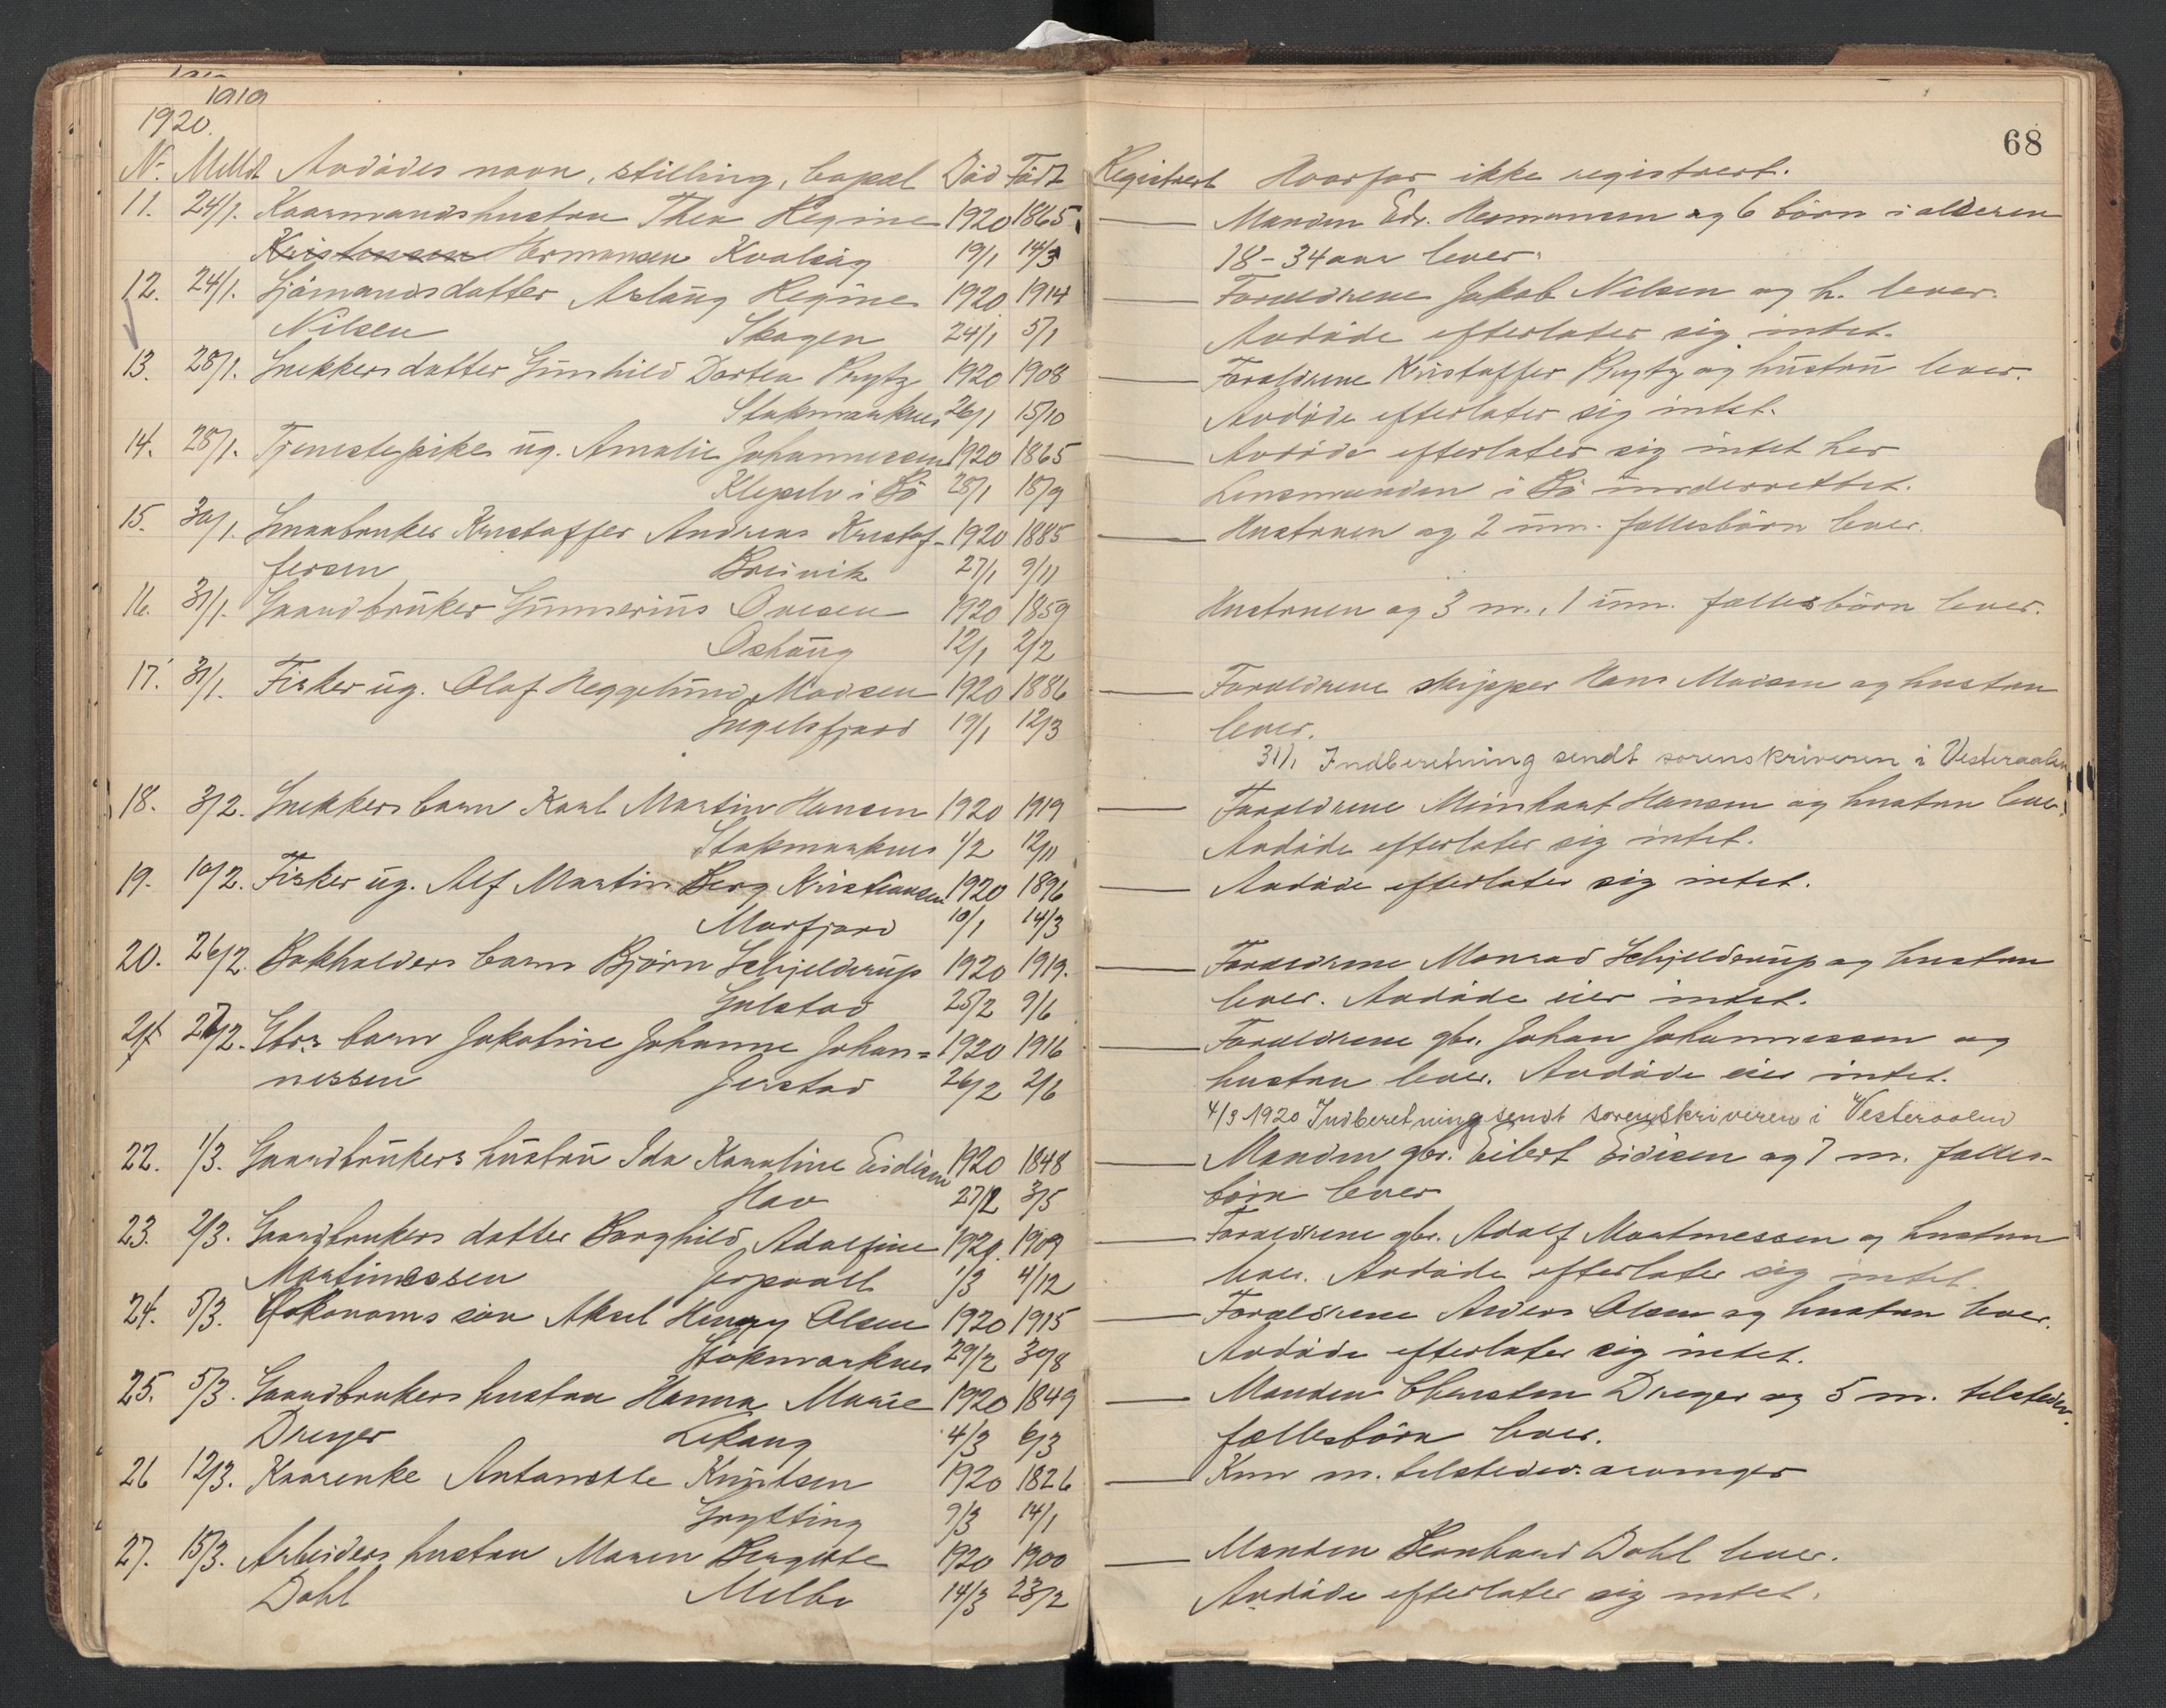 1919
1920.
68
Nr. Meldt Avdödes navn, stilling, bopæl Död Födt Registrert Hvorfor ikke registrert.
11. 24/1. Kaarmandshustru Thea Regine 1920 1865 — Manden Edv. Hermansen og 6 börn i alderen
Kristensen Hermansen Kvalsåg 19/1 14/3 18-34 aar lever.
12. 24/1. Sjömandsdatter Aslaug Regine 1920 1914 — Forældrene Jakob Nilsen og h. lever.
Nilsen Skagen 24/1 5/1 Avdöde efterlater sig intet.
13. 28/1. Snekkersdatter Gunhild Dortea Krytz 1920 1908 — Forældrene Kristoffer Krytz og hustru lever.
Stokmarknes 26/1 15/10 Avdöde efterlater sig intet.
14. 28/1. Tjenestepike ug. Amalie Johannessen 1920 1865 — Avdöde efterlater sig intet her
Klepelv i Bö 28/1 18/9 Lensmanden i Bö underrettet.
15. 30/1. Smaabruker Kristoffer Andreas Kristof- 1920 1885 — Hustruen og 2 um. fællesbörn lever.
fersen Breivik 27/1 9/11
16. 31/1. Gaardbruker Gunnerius Ovesen 1920 1859 Hustruen og 3 m., 1 um. fællesbörn lever.
Oshaug 12/1 2/2
17. 31/1. Fisker ug. Olaf Heggelund Madsen 1920 1886 — Forældrene skipper Hans Madsen og hustru
Ingelsfjord 19/1 12/3 lever.
31/1 Indberetning sendt sorenskriveren i Vesteraalen
18. 3/2. Snekkers barn Karl Martin Hansen 1920 1919 — Forældrene Meinhart Hansen og hustru lever.
Stokmarknes 1/2 12/11 Avdöde efterlater sig intet.
19. 10/2. Fisker ug. Alf Martin Berg Kristiansen 1920 1896 — Avdöde efterlater sig intet.
Morfjord 10/1 14/3
20. 26/2. Bokholders barn Björn Schjelderup 1920 1919. — Forældrene Monrad Schjelderup og hustru
Gulstad 25/2 9/6 lever. Avdöde eier intet.
21 27/2. Gbr.s barn Jakobine Johanne Johan= 1920 1916 — Forældrene gbr. Johan Johannessen og
nessen Jerstad 26/2 2/6 hustru lever. Avdöde eier intet.
4/3 1920 Indberetning sendt sorenskriveren i Vesteraalen
22. 1/3. Gaardbrukers hustru Ida Karoline Eidisen 1920 1848 — Manden gbr. Eilert Eidisen og 7 m. fælles-
Hav 27/2 3/5 börn lever
23. 2/3. Gaardbrukers datter Borghild Adolfine 1920. 1909 — Forældrene gbr. Adolf Martinessen og hustru
Martinessen Jerpvoll 1/3 4/12 lever. Avdöde efterlater sig intet.
24. 5/3. Oekonoms sön Aksel Henry Olsen 1920 1915 — Forældrene Anders Olsen og hustru lever.
Stokmarknes 29/2 30/8 Avdöde efterlater sig intet.
25. 5/3. Gaardbrukers hustru Hanna Marie 1920 1849 — Manden Chersten Dreyer og 5 m. tilstedev.
Dreyer Lekang 4/3 6/3 fællesbörn lever.
26 12/3. Kaarenke Antonette Knutsen 1920 1826 — Kun m. tilstedev. arvinger
Grytting 9/3 14/1
27. 15/3. Arbeiders hustru Maren Bergitte 1920 1900 — Manden Leonhard Dahl lever.
Dahl Melbo 14/3 23/2 Avdöde efterlater sig intet.